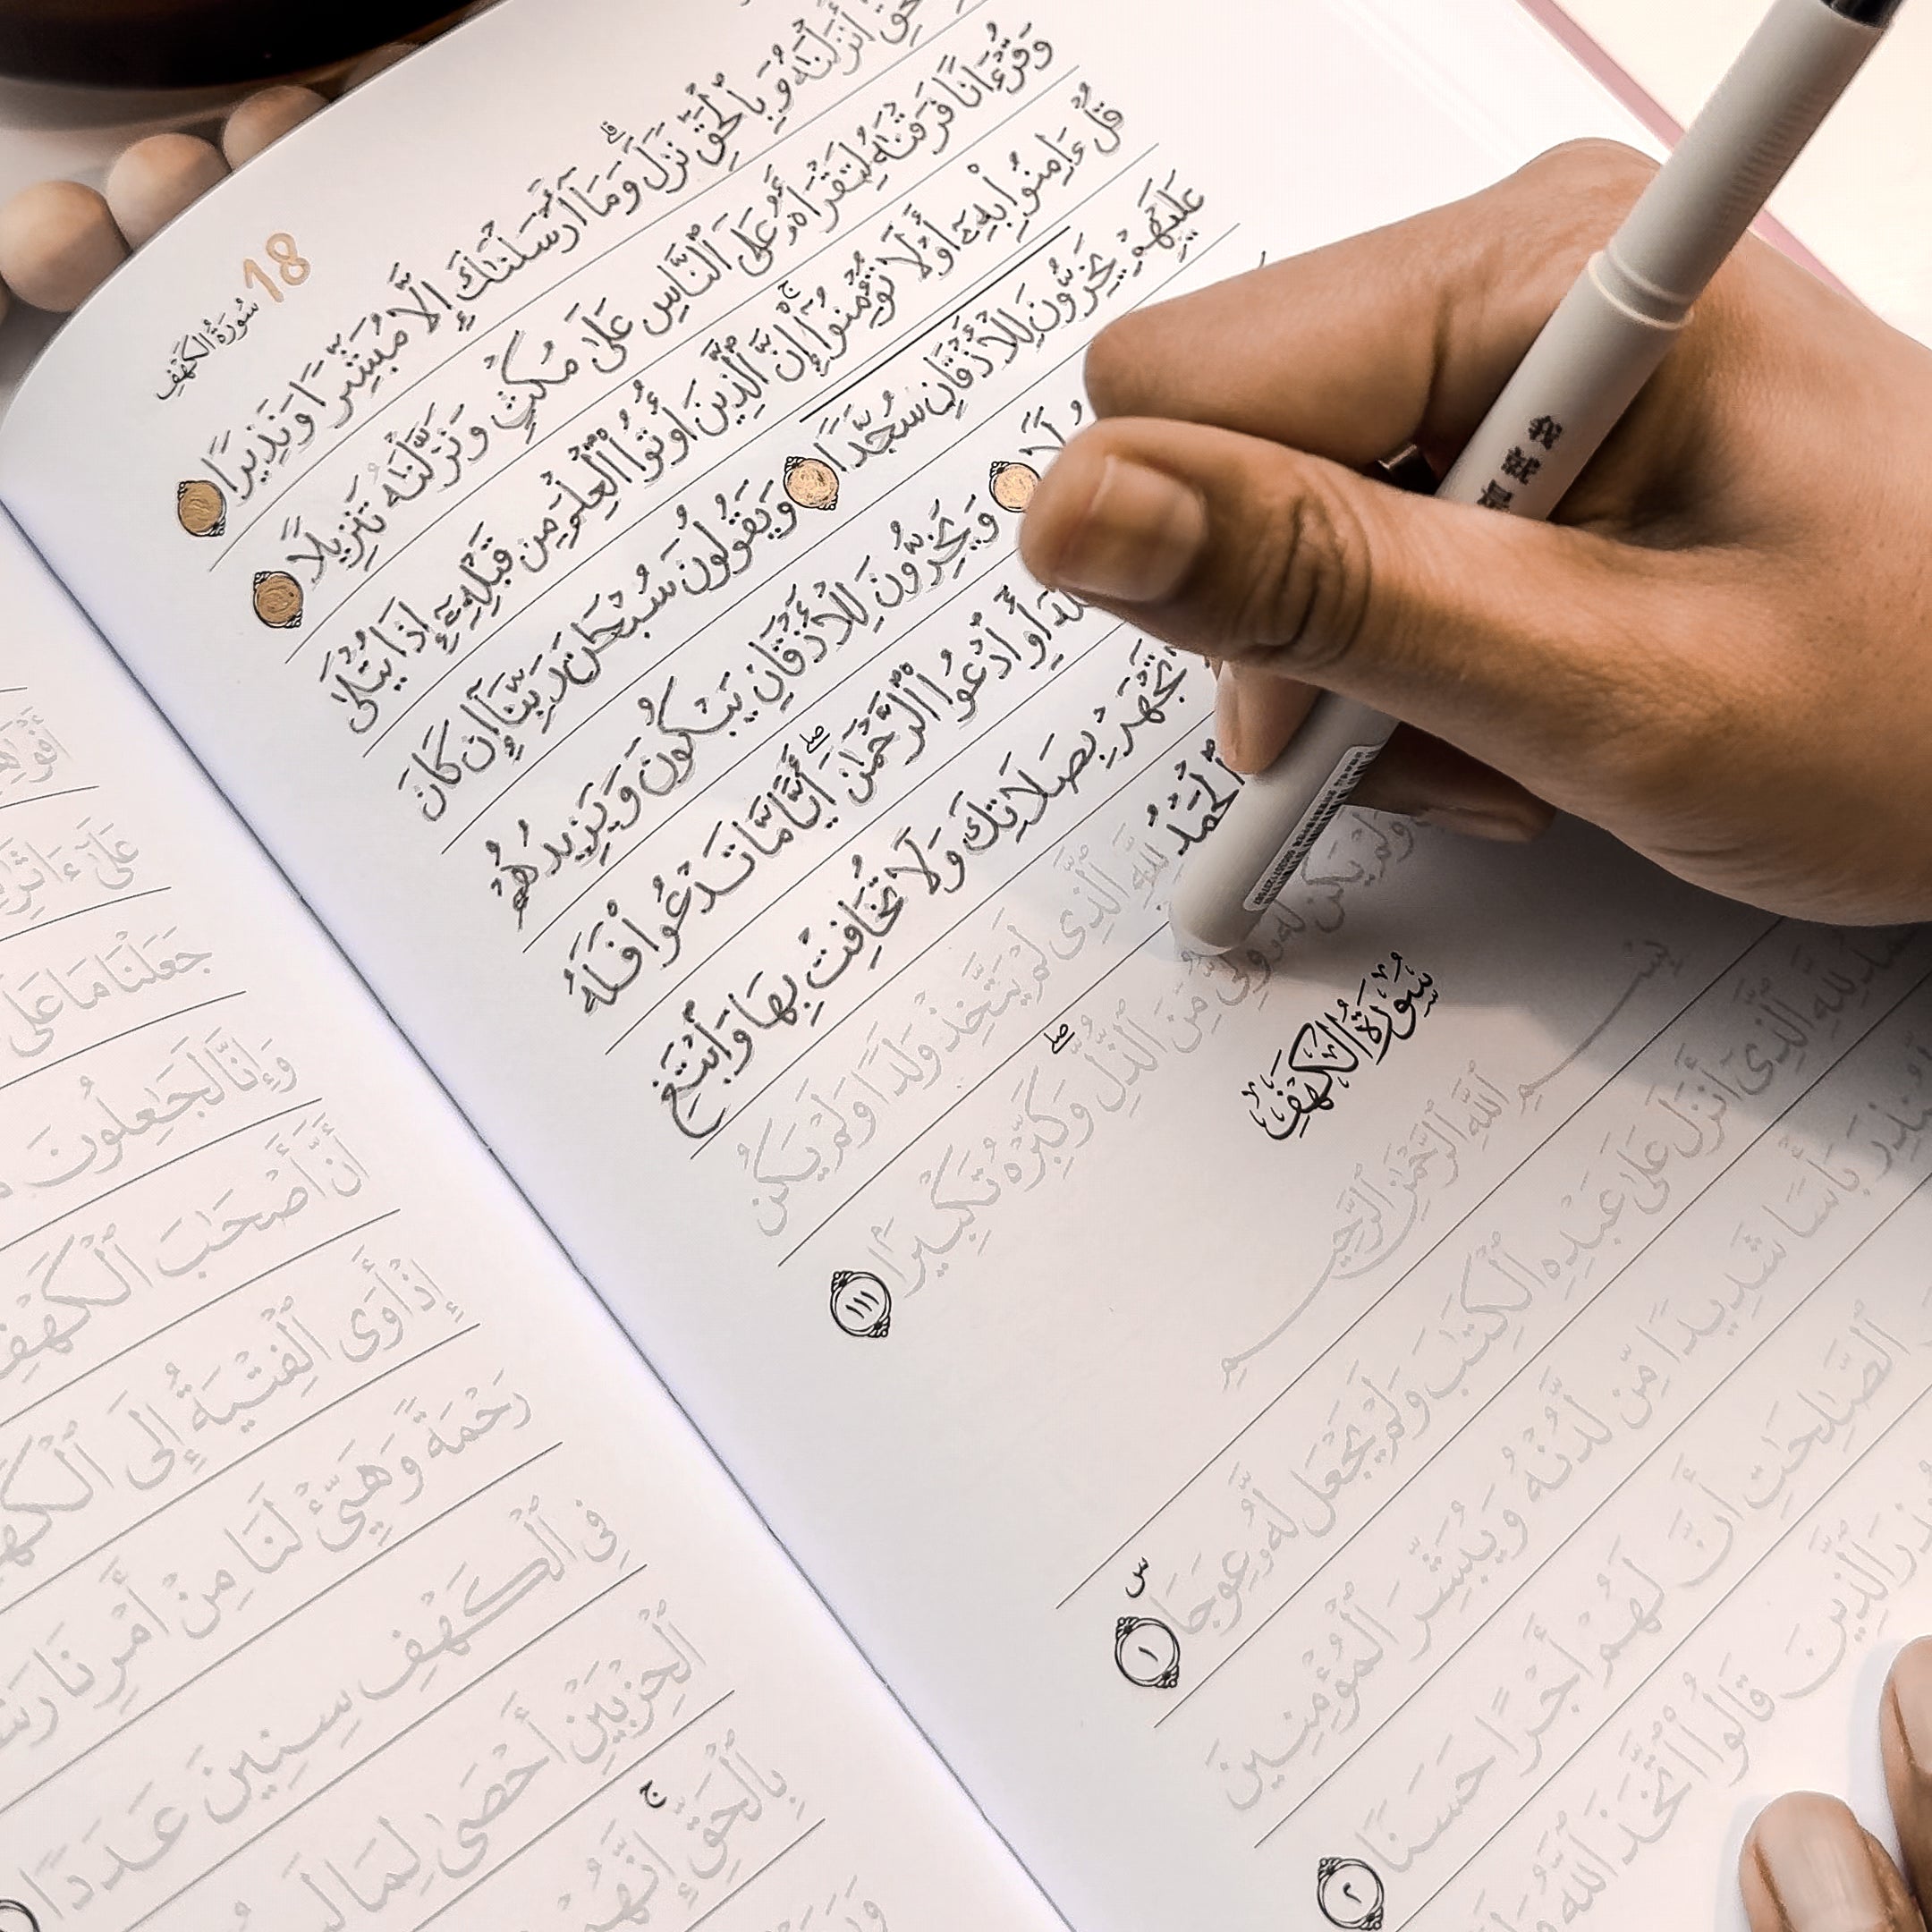 سُورَةُ الْكَهْفِ 18
أَنزَلْنَٰهُ وَبِٱلْحَقِّ نَزَلَ ۗ وَمَآ أَرْسَلْنَٰكَ إِلَّا مُبَشِّرًا وَنَذِيرًا
وَقُرْءَانًا فَرَقْنَٰهُ لِتَقْرَأَهُۥ عَلَى ٱلنَّاسِ عَلَىٰ مُكْثٍ وَنَزَّلْنَٰهُ تَنزِيلًا
قُلْ ءَامِنُوا۟ بِهِۦٓ أَوْ لَا تُؤْمِنُوٓا۟ ۚ إِنَّ ٱلَّذِينَ أُوتُوا۟ ٱلْعِلْمَ مِن قَبْلِهِۦٓ إِذَا يُتْلَىٰ
عَلَيْهِمْ يَخِرُّونَ لِلْأَذْقَانِ سُجَّدًا وَيَقُولُونَ سُبْحَٰنَ رَبِّنَآ إِن كَانَ
وَيَخِرُّونَ لِلْأَذْقَانِ يَبْكُونَ وَيَزِيدُهُمْ
أَوِ ٱدْعُوا۟ ٱلرَّحْمَٰنَ ۖ أَيًّا مَّا تَدْعُوا۟ فَلَهُ
تَجْهَرْ بِصَلَاتِكَ وَلَا تُخَافِتْ بِهَا وَٱبْتَغِ
ٱلْحَمْدُ لِلَّهِ ٱلَّذِى لَمْ يَتَّخِذْ وَلَدًا وَلَمْ يَكُن
وَلَمْ يَكُن لَّهُۥ وَلِىٌّ مِّنَ ٱلذُّلِّ ۖ وَكَبِّرْهُ تَكْبِيرًۢا ١١١
سُورَةُ الْكَهْفِ
بِسْمِ ٱللَّهِ ٱلرَّحْمَٰنِ ٱلرَّحِيمِ
لِلَّهِ ٱلَّذِىٓ أَنزَلَ عَلَىٰ عَبْدِهِ ٱلْكِتَٰبَ وَلَمْ يَجْعَل لَّهُۥ عِوَجَا ۜ ١
بَأْسًا شَدِيدًا مِّن لَّدُنْهُ وَيُبَشِّرَ ٱلْمُؤْمِنِينَ
ٱلصَّٰلِحَٰتِ أَنَّ لَهُمْ أَجْرًا حَسَنًا ٢
ٱلَّذِينَ قَالُوا۟ ٱتَّخَذَ ٱللَّهُ
عَلَىٰٓ ءَاثَٰرِهِمْ
جَعَلْنَا مَا عَلَى
وَإِنَّا لَجَٰعِلُونَ
أَنَّ أَصْحَٰبَ ٱلْكَهْفِ
إِذْ أَوَى ٱلْفِتْيَةُ إِلَى ٱلْكَهْفِ
رَحْمَةً وَهَيِّئْ لَنَا مِنْ أَمْرِنَا
فِى ٱلْكَهْفِ سِنِينَ عَدَدًا
ٱلْحِزْبَيْنِ أَحْصَىٰ لِمَا
بِٱلْحَقِّ ۚ إِنَّهُمْ